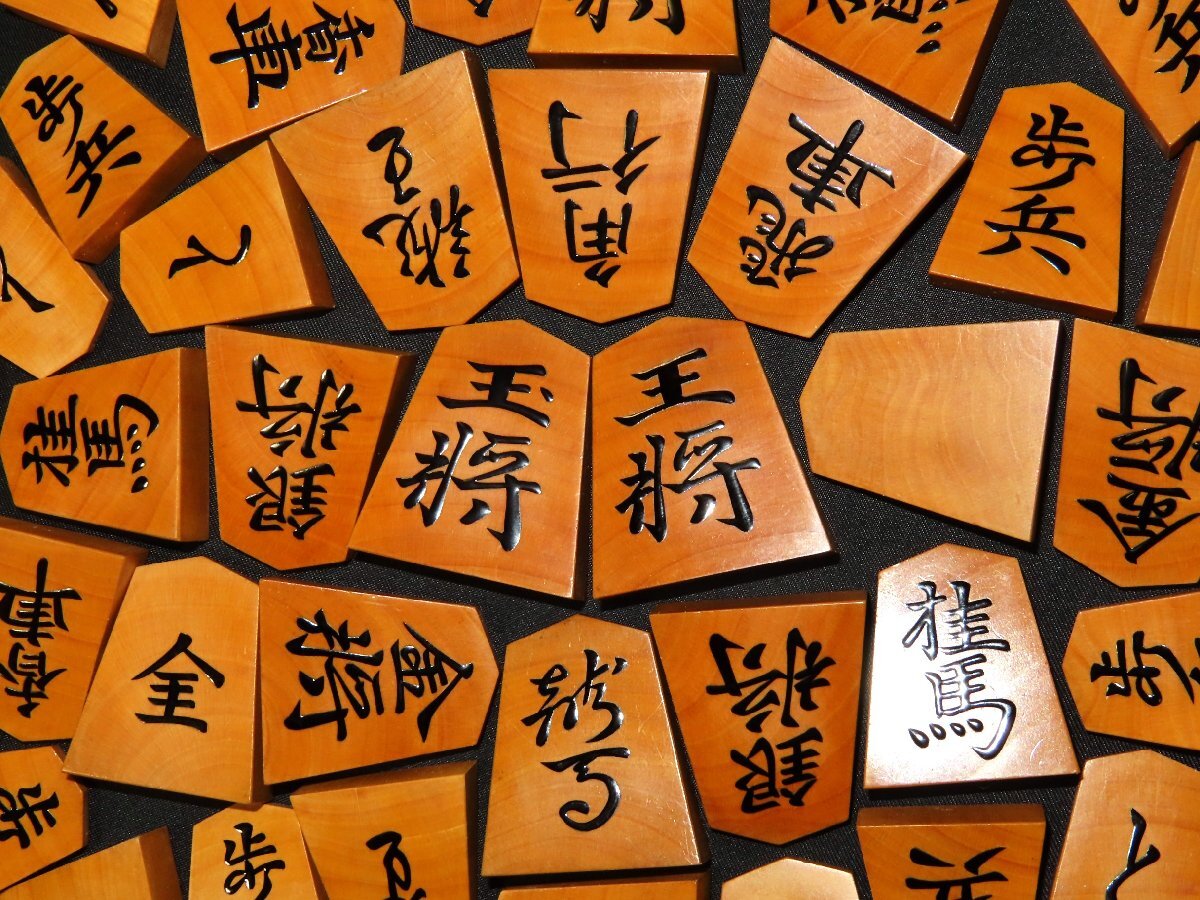 香車
歩兵
龍王
角行
飛車
歩兵
と
桂馬
銀将
玉将
王将
金将
香車
全
金将
龍馬
銀将
桂馬
歩
歩
歩
兵